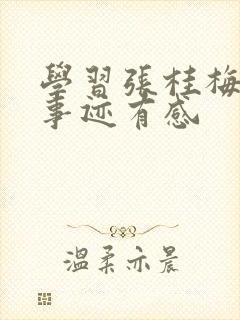 學習張桂梅
事迹有感
溫柔亦晨